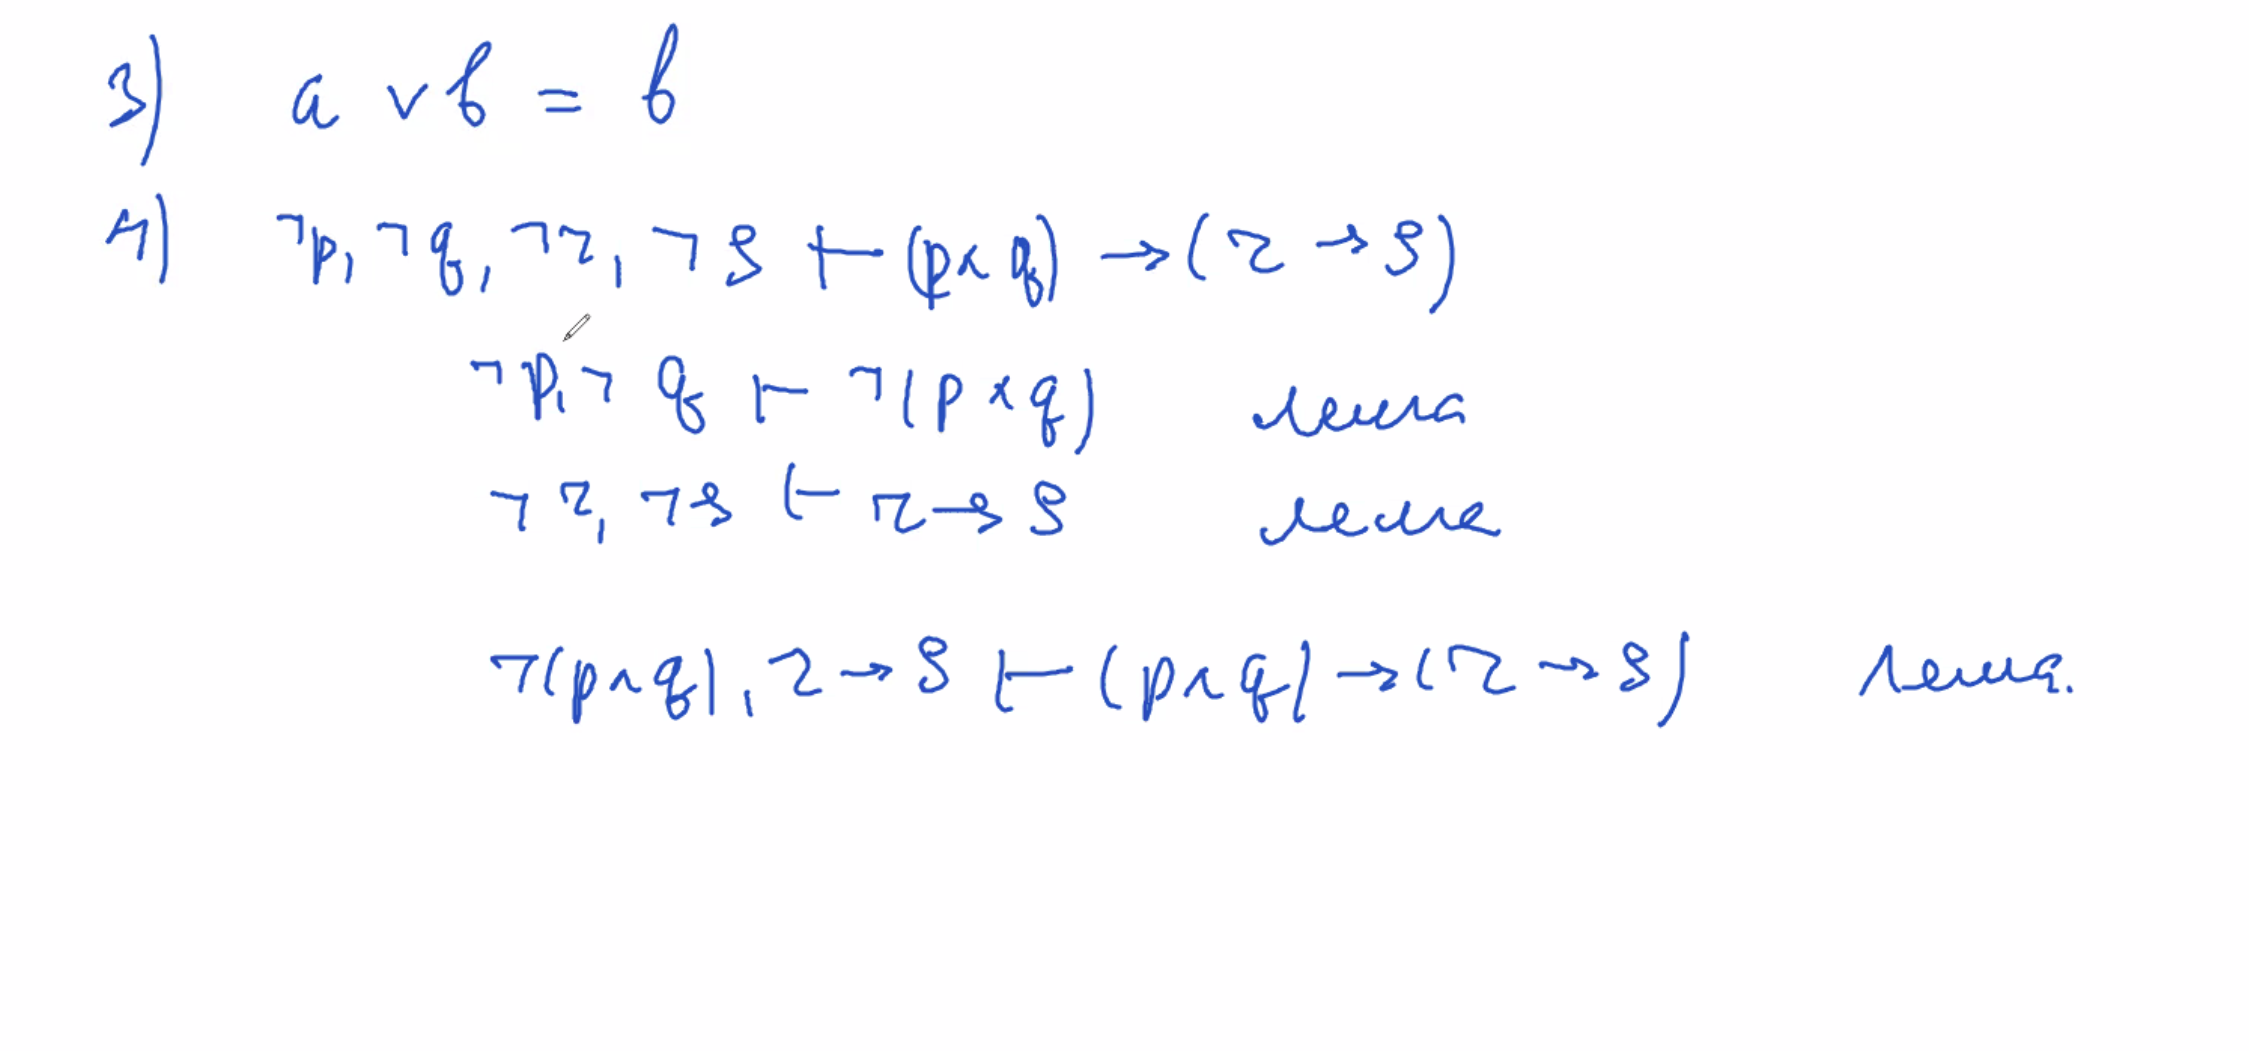 3) a ∨ b = b
4) ¬p, ¬q, ¬r, ¬s ⊢ (p ∧ q) → (r → s)
¬p, ¬q ⊢ ¬(p ∧ q) лемма
¬r, ¬s ⊢ r → s лемма
¬(p ∧ q), r → s ⊢ (p ∧ q) → (r → s) лемма.